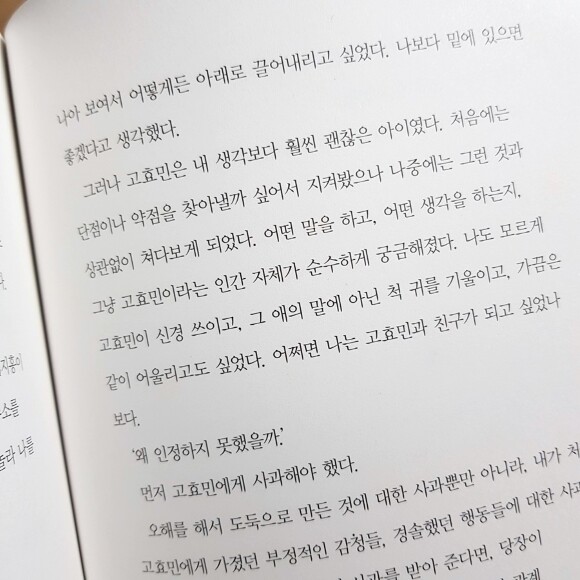 나아 보여서 어떻게든 아래로 끌어내리고 싶었다. 나보다 밑에 있으면
좋겠다고 생각했다.
그러나 고효민은 내 생각보다 훨씬 괜찮은 아이였다. 처음에는
단점이나 약점을 찾아낼까 싶어서 지켜봤으나 나중에는 그런 것과
상관없이 쳐다보게 되었다. 어떤 말을 하고, 어떤 생각을 하는지,
그냥 고효민이라는 인간 자체가 순수하게 궁금해졌다. 나도 모르게
고효민이 신경 쓰이고, 그 애의 말에 아닌 척 귀를 기울이고, 가끔은
같이 어울리고도 싶었다. 어쩌면 나는 고효민과 친구가 되고 싶었나
보다.
‘왜 인정하지 못했을까.’
먼저 고효민에게 사과해야 했다.
오해를 해서 도둑으로 만든 것에 대한 사과뿐만 아니라, 내가 처
고효민에게 가졌던 부정적인 감정들, 경솔했던 행동들에 대한 사고
사과를 받아 준다면, 당장이
지홍이
소를
놀라 나를